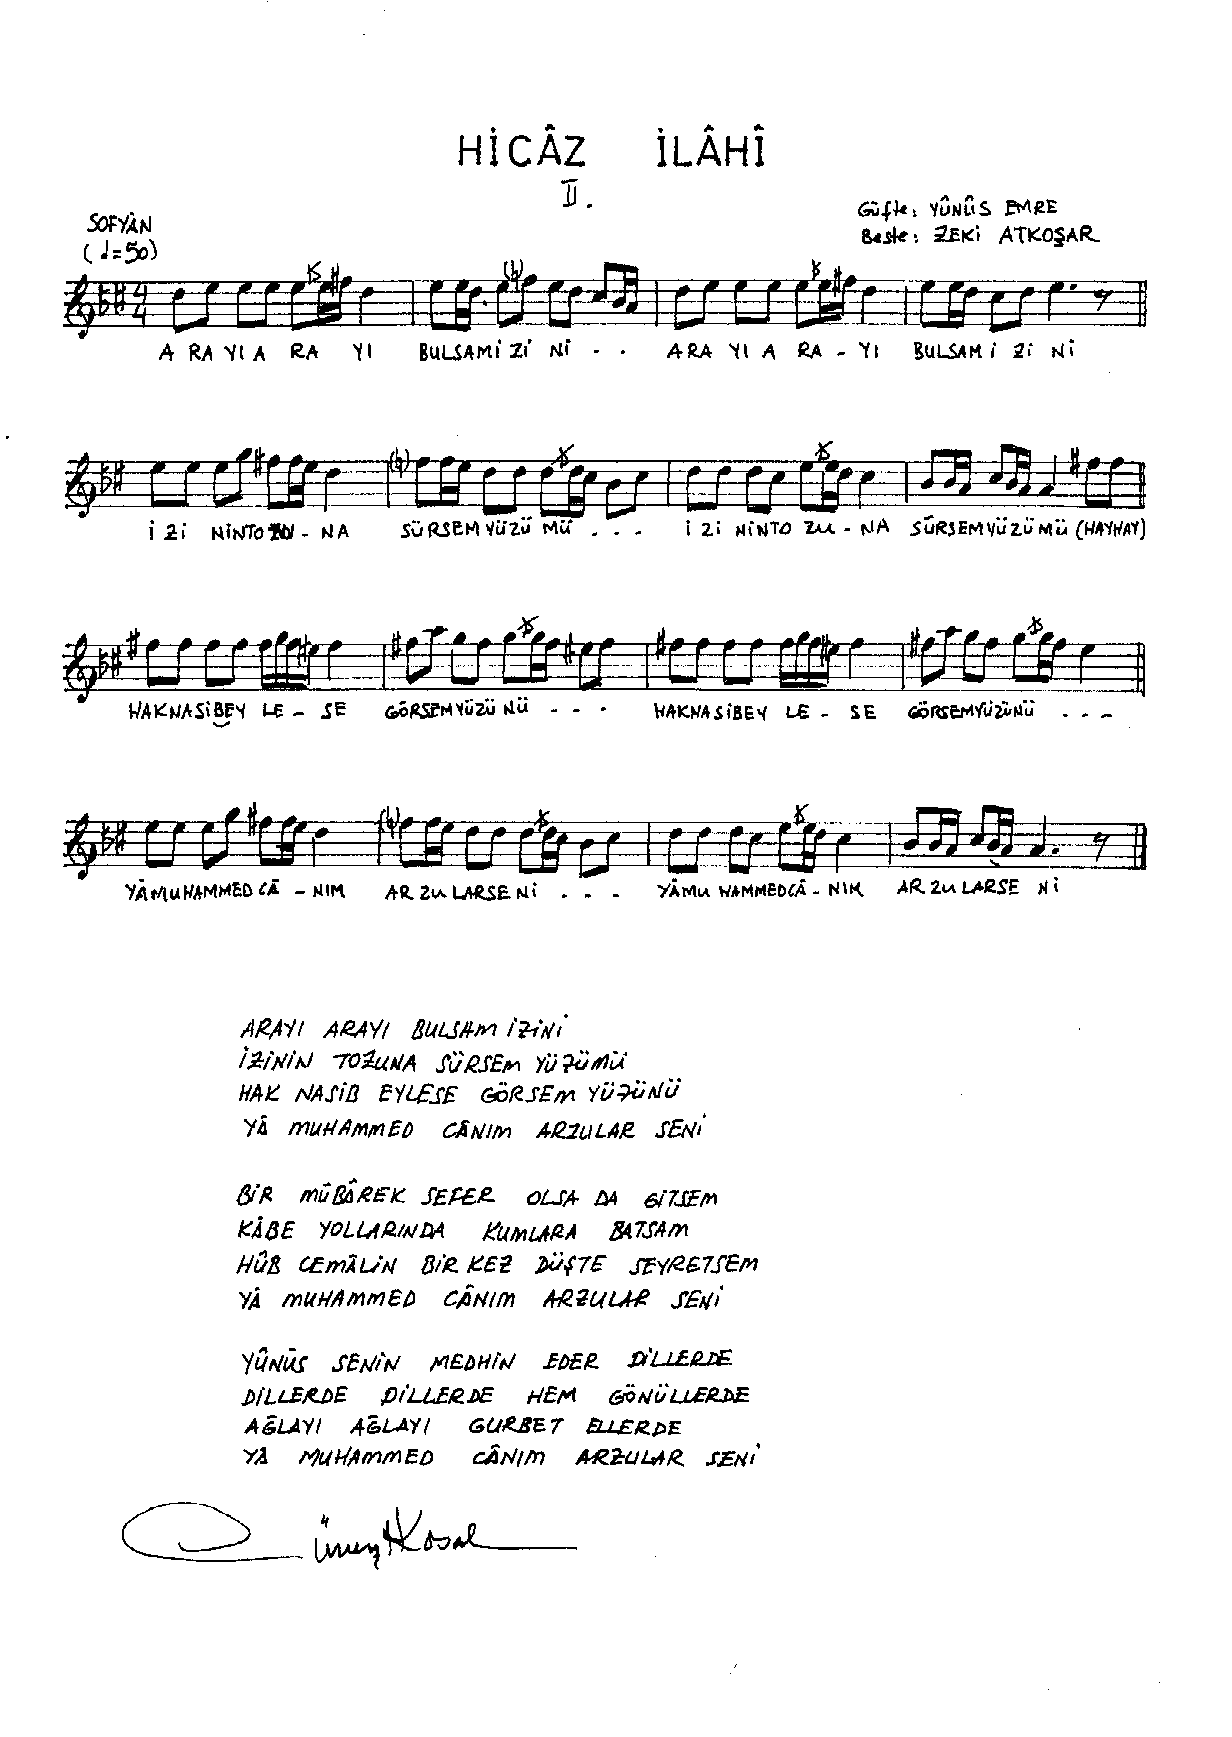 HİCÂZ İLÂHÎ
II.
SOFYÂN
(♩=50)
Güfte: YÛNÛS EMRE
Beste: ZEKİ ATKOŞAR
A RA YI A RA YI BULSAMİ Zİ Nİ - - ARA YI A RA - YI BULSAM İ Zİ Nİ
İ Zİ NİNTO ZU - NA SÜRSEM YÜZÜ MÜ - - - İ Zİ NİNTO ZU - NA SÜRSEMYÜZÜMÜ (HAYHAY)
HAKNASİBEY LE - SE GÖRSEMYÜZÜNÜ - - - HAKNASİBEY LE - SE GÖRSEMYÜZÜNÜ - - -
YÂMUHAMMEDCÂ - NIM AR ZU LARSE Nİ - - - YÂMU HAMMEDCÂ - NIM AR ZU LARSE Nİ
ARAYI ARAYI BULSAM İZİNİ
İZİNİN TOZUNA SÜRSEM YÜZÜMÜ
HAK NASİB EYLESE GÖRSEM YÜZÜNÜ
YÂ MUHAMMED CÂNIM ARZULAR SENİ
BİR MÜBÂREK SEFER OLSA DA GİTSEM
KÂBE YOLLARINDA KUMLARA BATSAM
HÛB CEMÂLİN BİR KEZ DÜŞTE SEYRETSEM
YÂ MUHAMMED CÂNIM ARZULAR SENİ
YÛNÛS SENİN MEDHİN EDER DİLLERDE
DİLLERDE DİLLERDE HEM GÖNÜLLERDE
AĞLAYI AĞLAYI GURBET ELLERDE
YÂ MUHAMMED CÂNIM ARZULAR SENİ
Cüneyt Kosal